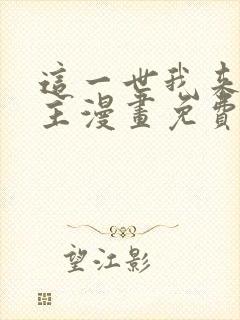 這一世我來
主漫畫免費
望江影